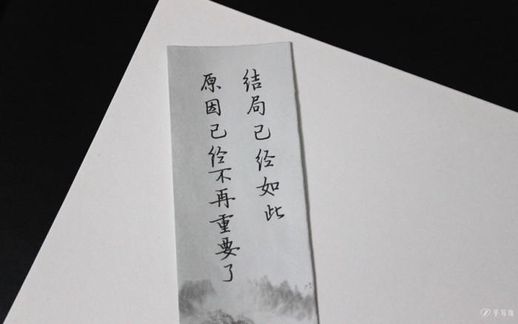 结局已经如此
原因已经不再重要了
手写馆